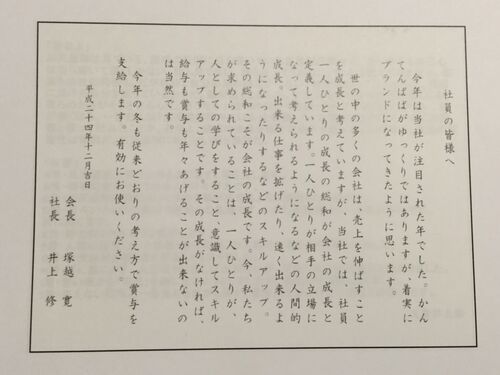 社員の皆様へ
今年は当社が注目された年でした。かん
てんぱぱがゆっくりではありますが、着実に
ブランドになってきたように思います。
世の中の多くの会社は、売上を伸ばすこと
を成長と考えていますが、当社では、社員
一人ひとりの成長の総和が会社の成長と
定義しています。一人ひとりが相手の立場に
なって考えられるようになるなどの人間的
成長。出来る仕事を拡げたり、速く出来るよ
うになったりするなどのスキルアップ。
その総和こそが会社の成長です。今、私たち
が求められていることは、一人ひとりが、
人としての学びをすること、意識してスキル
アップすることです。その成長がなければ、
給与も賞与も年々あげることが出来ないの
は当然です。
今年の冬も従来どおりの考え方で賞与を
支給します。有効にお使いください。
平成二十四年十二月吉日
会長 塚越 寛
社長 井上 修